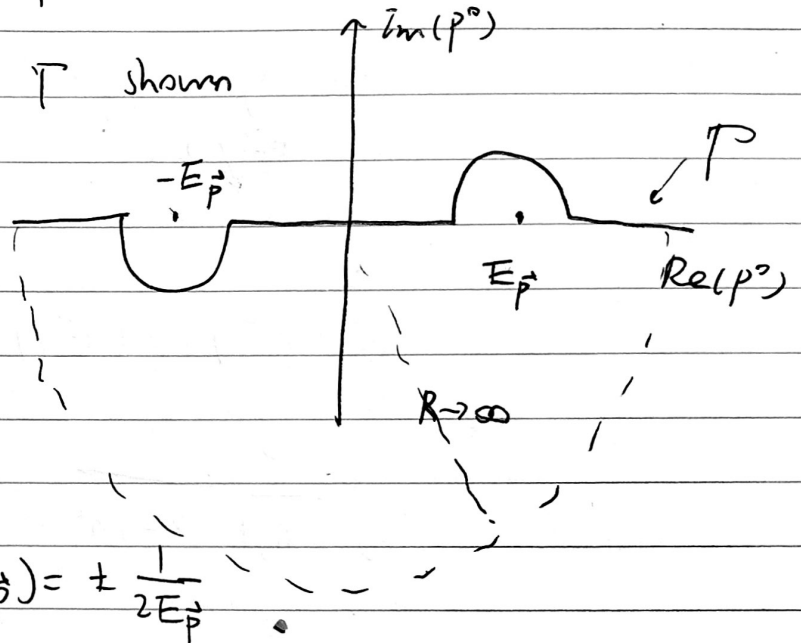 Im(p⁰)
Γ shown
Γ
-E_p⃗
E_p⃗
Re(p⁰)
R→∞
)= ± 1/2E_p⃗